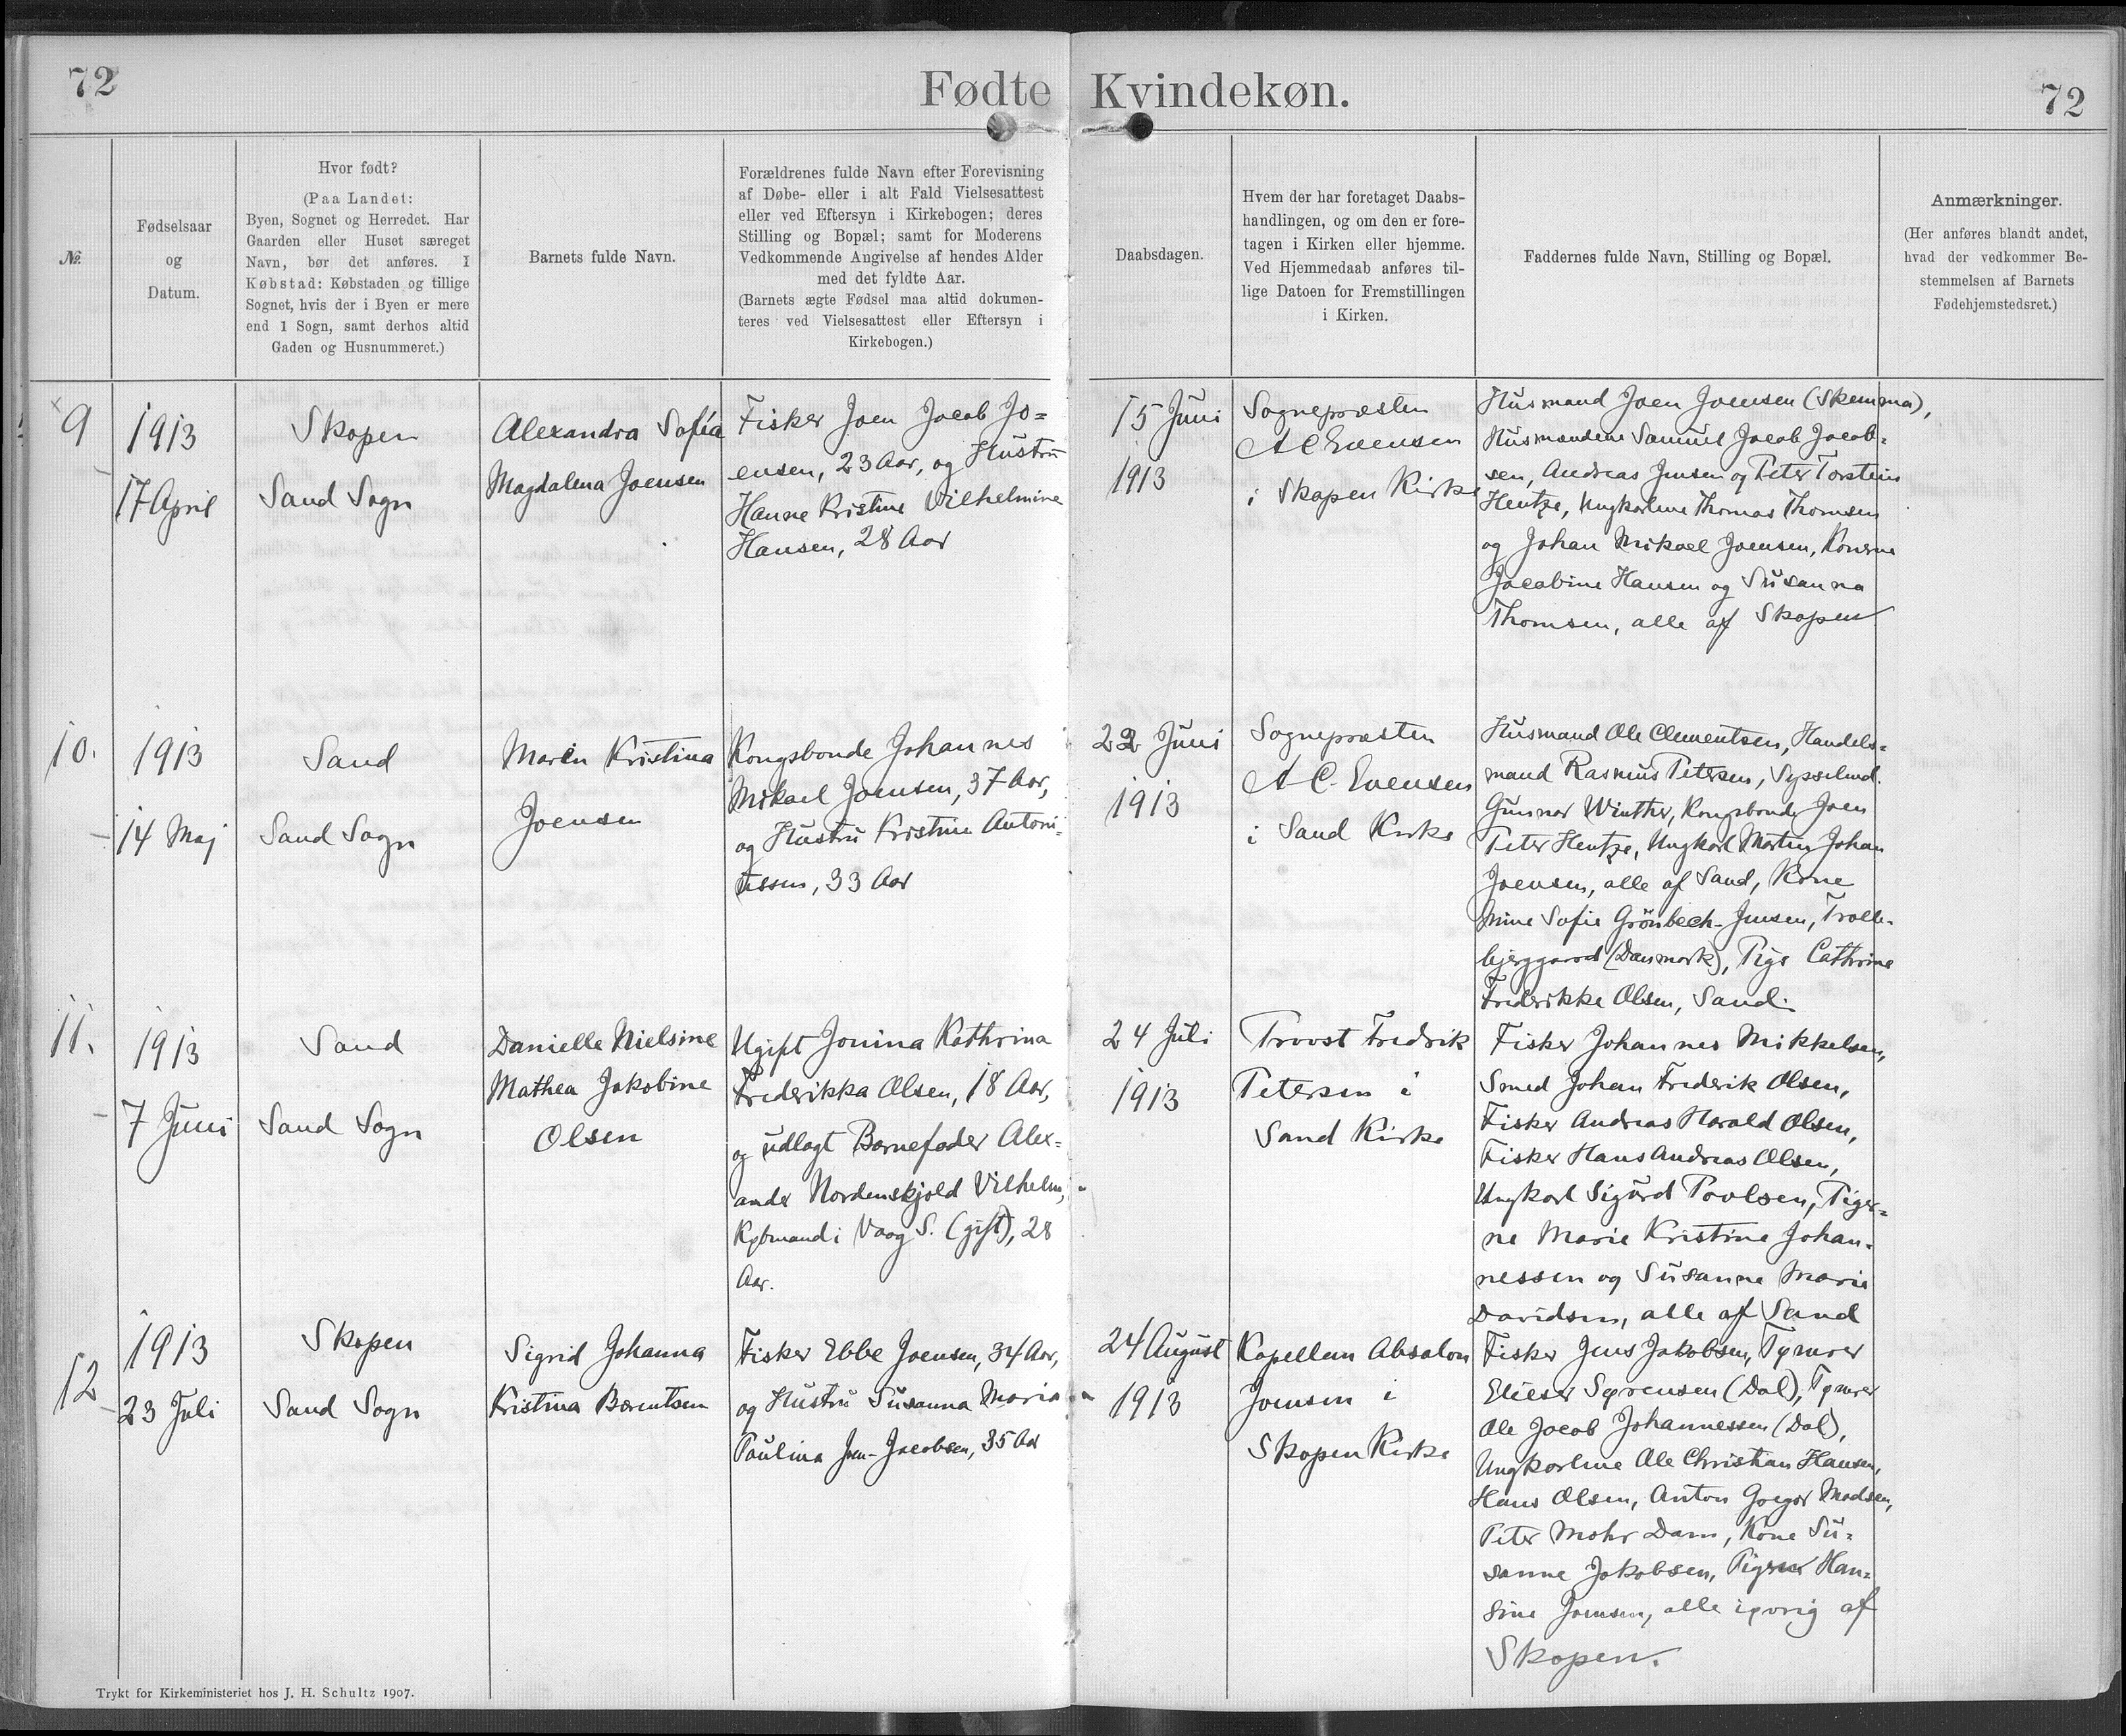 72
Fødte Kvindekøn.
72
№
Fødselsaar
og
Datum.
Hvor født?
(Paa Landet:
Byen, Sognet og Herredet. Har
Gaarden eller Huset særeget
Navn, bør det anføres. I
Købstad: Købstaden og tillige
Sognet, hvis der i Byen er mere
end 1 Sogn, samt derhos altid
Gaden og Husnummeret.)
Barnets fulde Navn.
Forældrenes fulde Navn efter Forevisning
af Døbe- eller i alt Fald Vielsesattest
eller ved Eftersyn i Kirkebogen; deres
Stilling og Bopæl; samt for Moderens
Vedkommende Angivelse af hendes Alder
med det fyldte Aar.
(Barnets ægte Fødsel maa altid dokumen-
teres ved Vielsesattest eller Eftersyn i
Kirkebogen.)
Daabsdagen.
Hvem der har foretaget Daabs-
handlingen, og om den er fore-
tagen i Kirken eller hjemme.
Ved Hjemmedaab anføres til-
lige Datoen for Fremstillingen
i Kirken.
Faddernes fulde Navn, Stilling og Bopæl.
Anmærkninger.
(Her anføres blandt andet,
hvad der vedkommer Be-
stemmelsen af Barnets
Fødehjemstedsret.)
9
1913
17 April
Skopen
Sand Sogn
Alexandra Sofia
Magdalena Joensen
Fisker Joen Jacob Jo=
ensen, 23 Aar, og Hustru
Hanne Kristine Vilhelmine
Hansen, 28 Aar
15 Juni
1913
Sognepræsten
A C Evensen
i Skopen Kirke
Husmand Joen Joensen (Skemma),
Husmændene Samuel Jacob Jacob=
sen, Andreas Jensen og Peter Torstein
Hentze, Ungkarlene Thomas Thomsen
og Johan Mikael Joensen, Konerne
Jacobine Hansen og Susanna
Thomsen, alle af Skopen
10.
1913
14 Maj
Sand
Sand Sogn
Maren Kristina
Joensen
Kongsbonde Johannes
Mikael Joensen, 37 Aar,
og Hustru Kristine Antoni=
ussen, 33 Aar
22 Juni
1913
Sognepræsten
A C. Evensen
i Sand Kirke
Husmand Ole Clementsen, Handels=
mand Rasmus Petersen, Sysselmd.
Gunnar Winther, Kongsbonde Joen
Peter Hentze, Ungkarl Martin Johan
Joensen, alle af Sand, Kone
Mine Sofie Grönbech-Jensen, Trolle-
bjerggaard (Danmark), Pige Cathrine
Frederikke Olsen, Sand.
11.
1913
7 Juni
Sand
Sand Sogn
Danielle Nielsine
Mathea Jakobine
Olsen
Ugift Jonina Kathrina
Frederikka Olsen, 18 Aar,
og udlagt Barnefader Alex=
ander Nordenskjold Vilhelm,
Købmand i Vaag S. (gift), 28
Aar.
24 Juli
1913
Provst Fredrik
Petersen i
Sand Kirke
Fisker Johannes Mikkelsen,
Smed Johan Frederik Olsen,
Fisker Andreas Harald Olsen,
Fisker Hans Andreas Olsen,
Ungkarl Sigurd Poulsen, Piger=
ne Marie Kristine Johan=
nessen og Susanne Marie
Davidsen, alle af Sand
12
1913
23 Juli
Skopen
Sand Sogn
Sigrid Johanna
Kristina Barentsen
Fisker Ebbe Joensen, 34 Aar,
og Hustru Susanna Maria
Paulina Jacobsen, 35 Aar
24 August
1913
Kapellan Absalon
Joensen i
Skopen Kirke
Fisker Jens Jakobsen, Tømrer
Elieser Sørensen (Dal), Tømrer
Ole Jacob Johannessen (Dal),
Ungkarlene Ole Christian Hansen,
Hans Olsen, Anton Gregor Madsen,
Peter Mohr Dam, Kone Su=
sanne Jakobsen, Han=
sine Joensen, alle iøvrig af
Skopen.
Trykt for Kirkeministeriet hos J. H. Schultz 1907.